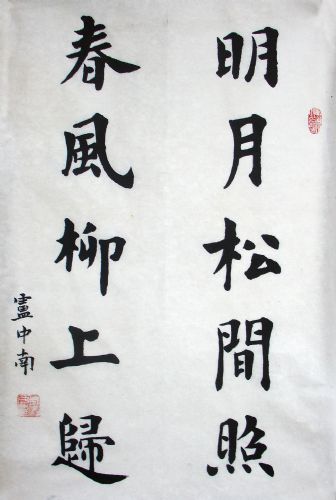 明月松間照
春風柳上歸
盧中南